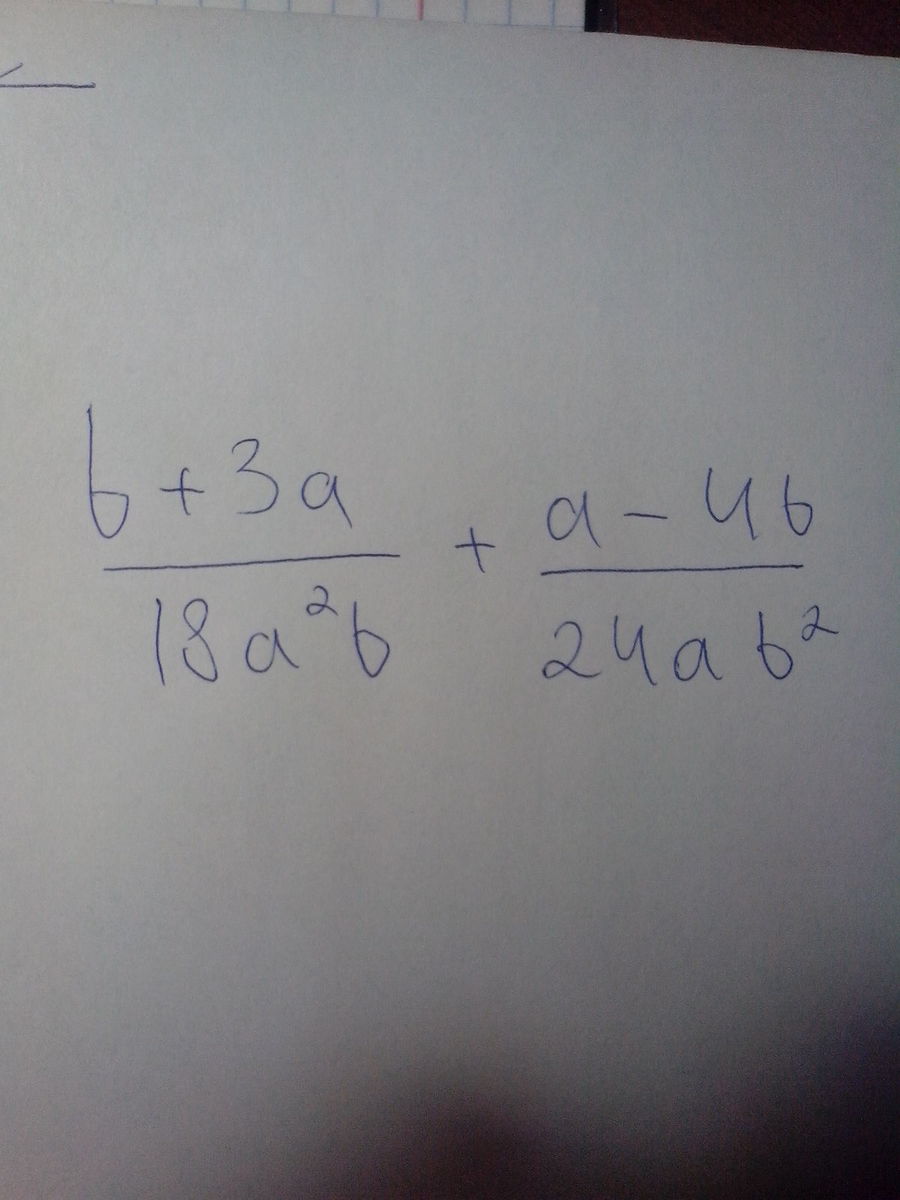 b + 3a / 18a²b + a - 4b / 24ab²